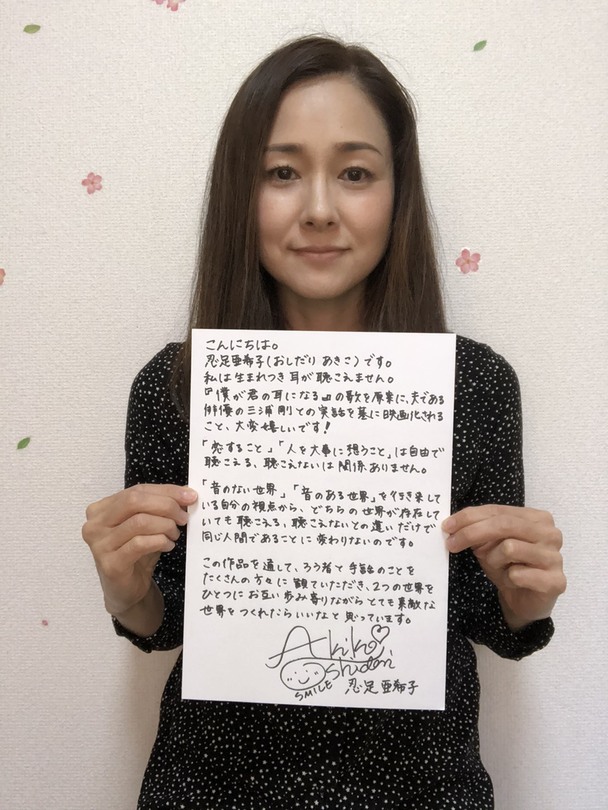 こんにちは。
忍足亜希子(おしだり あきこ)です。
私は生まれつき耳が聴こえません。
『僕が君の耳になる』の歌を原案に、夫である
俳優の三浦剛との実話を基に映画化される
こと、大変嬉しいです!
「恋すること」「人を大事に想うこと」は自由で
聴こえる、聴こえないは関係ありません。
「音のない世界」「音のある世界」を行き来して
いる自分の視点から、どちらの世界が存在して
いても聴こえる、聴こえないとの違いだけで
同じ人間であることに変わりないのです。
この作品を通して、ろう者と手話のことを
たくさんの方々に観ていただき、2つの世界を
ひとつにお互い歩み寄りながらとても素敵な
世界をつくれたらいいなと思っています。
Akiko
Oshidari
SMILE 忍足亜希子